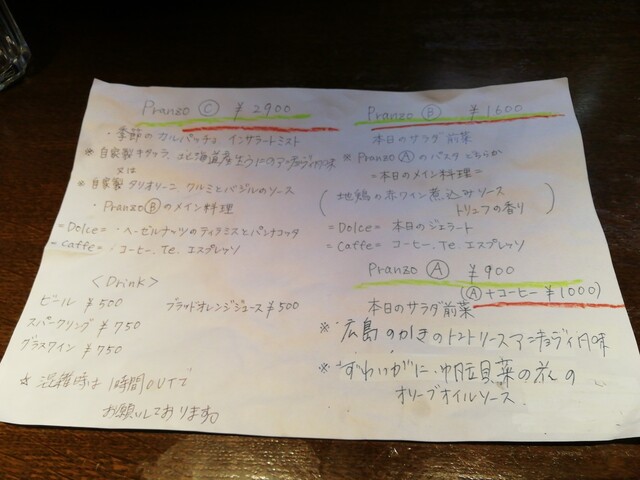 Pranzo Ⓒ ¥2900
・季節のカルパッチョ、インサラートミスト
※ 自家製キタッラ、北海道産生うにのアンチョヴィ風味
又は
※ 自家製タリオリーニ、クルミとバジルのソース
・Pranzo Ⓑのメイン料理
=Dolce= ・ヘーゼルナッツのティラミスとパンナコッタ
=Caffe= ・コーヒー、Te、エスプレッソ
<Drink>
ビール ¥500
ブラッドオレンジジュース ¥500
スパークリング ¥750
グラスワイン ¥750
☆ 混雑時は1時間OUTで
お願いしております。
Pranzo Ⓑ ¥1600
本日のサラダ前菜
※ Pranzo Ⓐのパスタどちらか
=本日のメイン料理=
(地鶏の赤ワイン煮込みソース
トリュフの香り)
=Dolce= 本日のジェラート
=Caffe= コーヒー、Te、エスプレッソ
Pranzo Ⓐ ¥900
(Ⓐ+コーヒー ¥1000)
本日のサラダ前菜
※ 広島のかきのトマトソースアンチョヴィ風味
※ ずわいがに、帆立貝、菜の花の
オリーブオイルソース